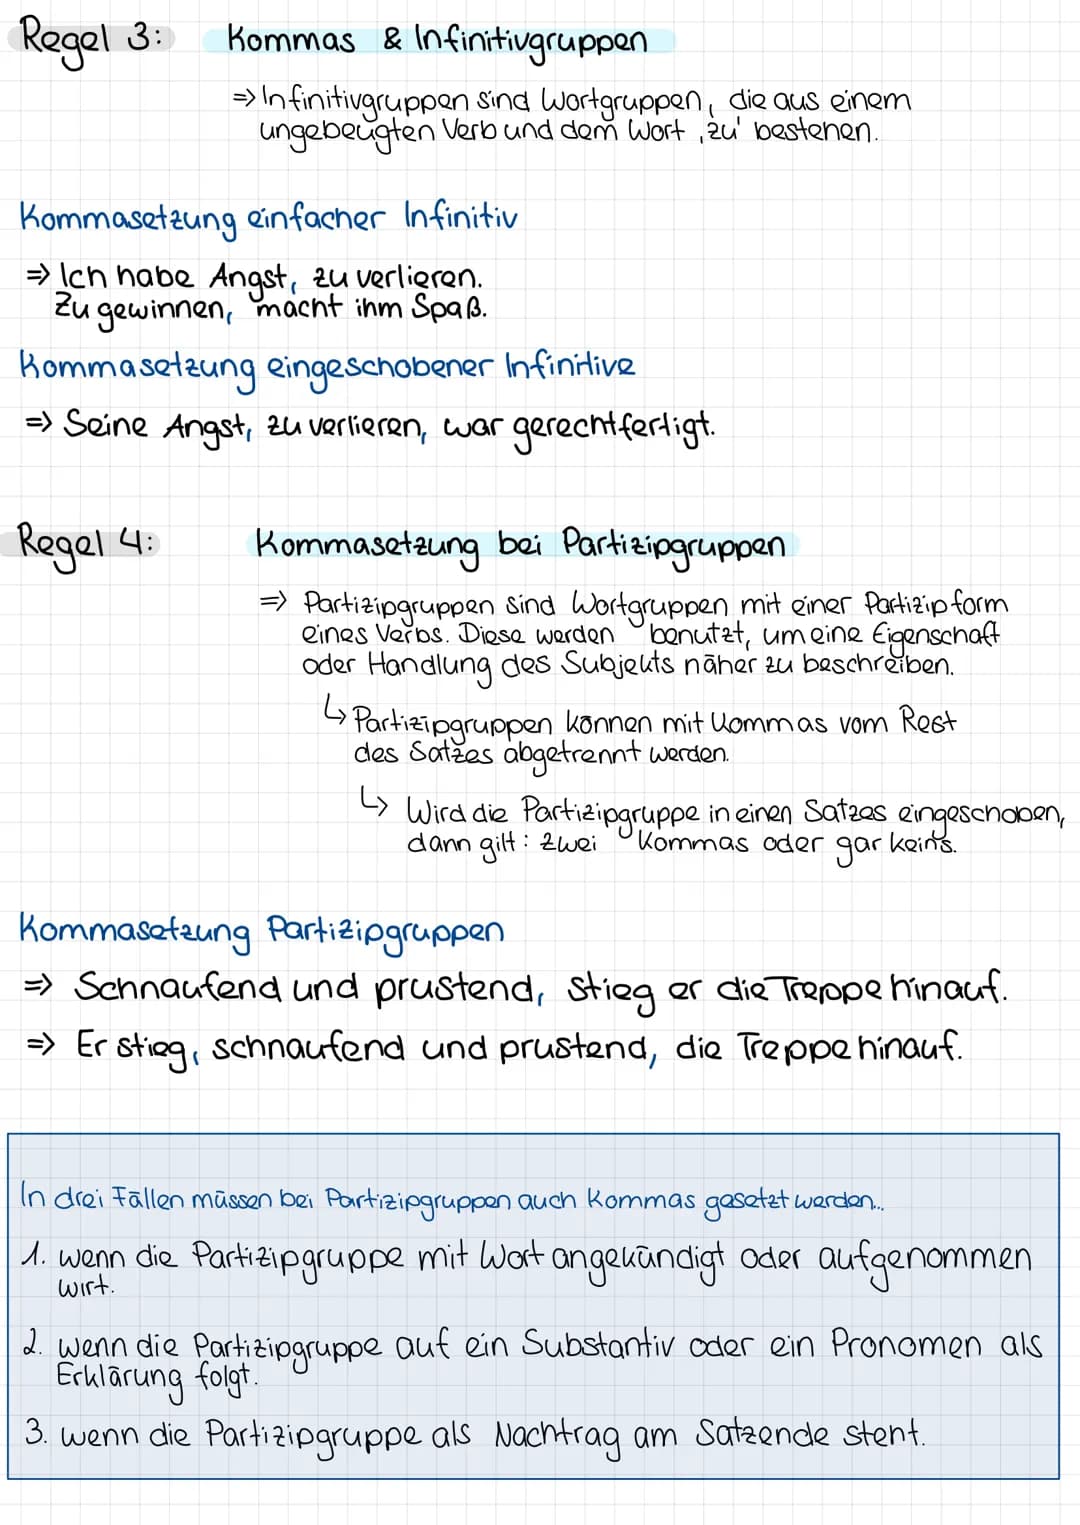 Regel 3: Kommas & Infinitivgruppen
=> Infinitivgruppen sind Wortgruppen, die aus einem
ungebeugten Verb und dem Wort ‚zu' bestehen.
Kommasetzung einfacher Infinitiv
=> Ich habe Angst, zu verlieren.
Zu gewinnen, macht ihm Spaß.
Kommasetzung eingeschobener Infinitive
=> Seine Angst, zu verlieren, war gerechtfertigt.
Regel 4: Kommasetzung bei Partizipgruppen
=> Partizipgruppen sind Wortgruppen mit einer Partizipform
eines Verbs. Diese werden benutzt, um eine Eigenschaft
oder Handlung des Subjekts näher zu beschreiben.
↳ Partizipgruppen können mit Kommas vom Rest
des Satzes abgetrennt werden.
↳ Wird die Partizipgruppe in einen Satzes eingeschoben,
dann gilt: zwei Kommas oder gar keins.
Kommasetzung Partizipgruppen
=> Schnaufend und prustend, stieg er die Treppe hinauf.
=> Er stieg, schnaufend und prustend, die Treppe hinauf.
In drei Fällen müssen bei Partizipgruppen auch Kommas gesetzt werden...
1. wenn die Partizipgruppe mit Wort angekündigt oder aufgenommen
wirt.
2. wenn die Partizipgruppe auf ein Substantiv oder ein Pronomen als
Erklärung folgt.
3. wenn die Partizipgruppe als Nachtrag am Satzende steht.